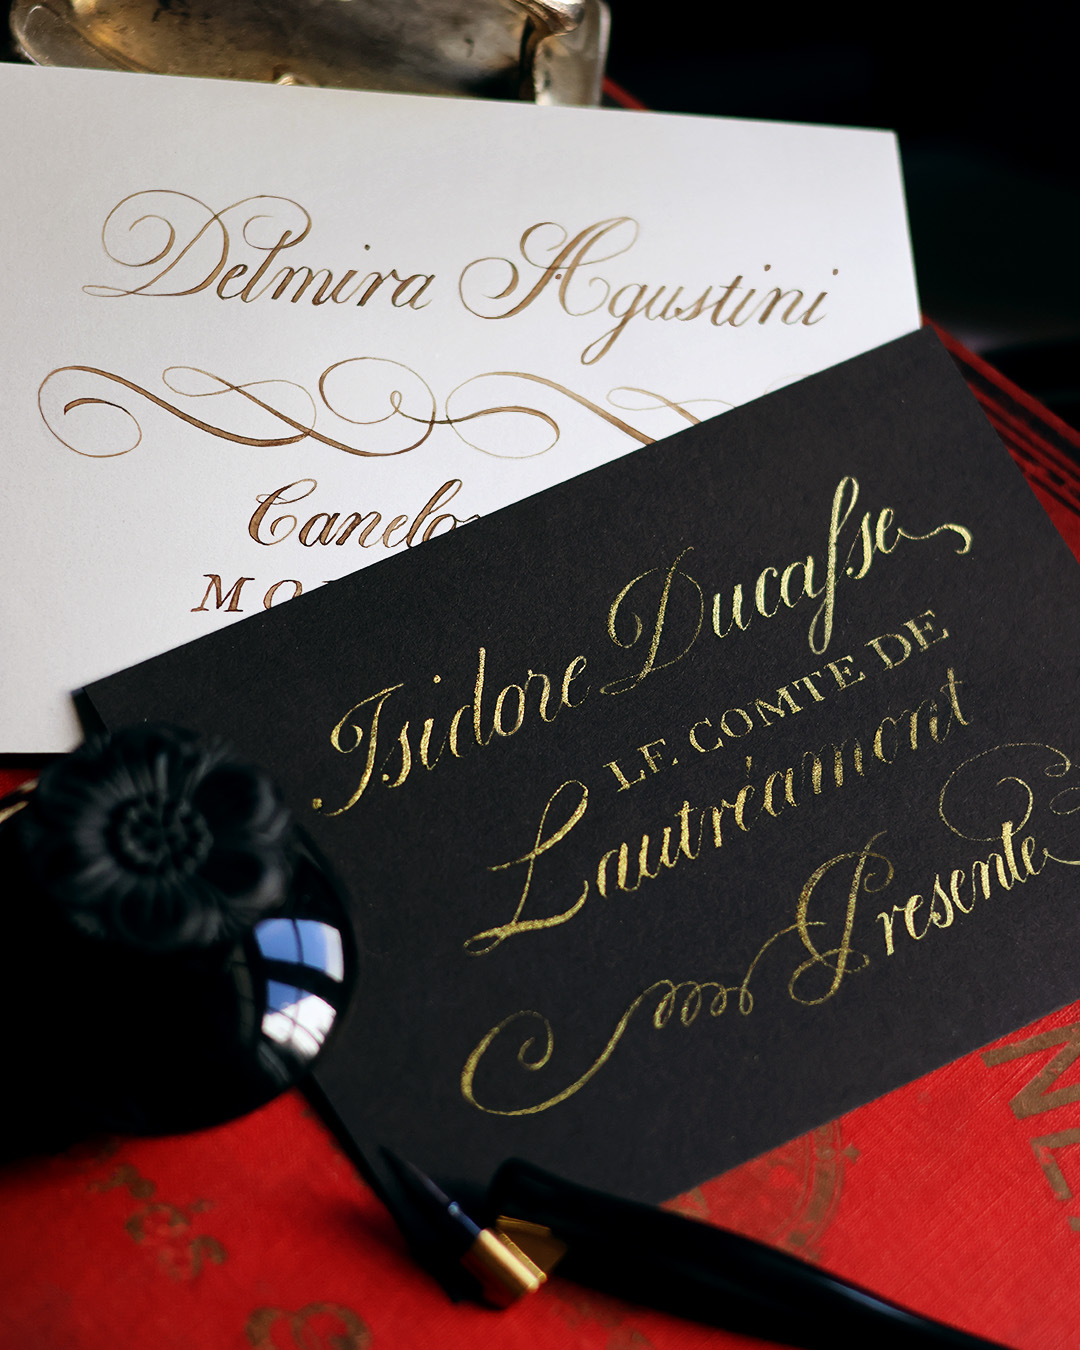 Delmira Agustini
Isidore Ducaſse
LE COMTE DE
Lautréamont
Presente